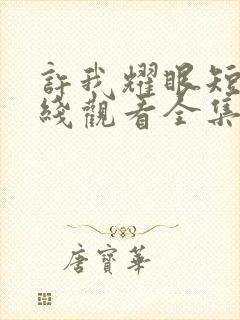 許我耀眼短
綫觀看全集
唐寶華